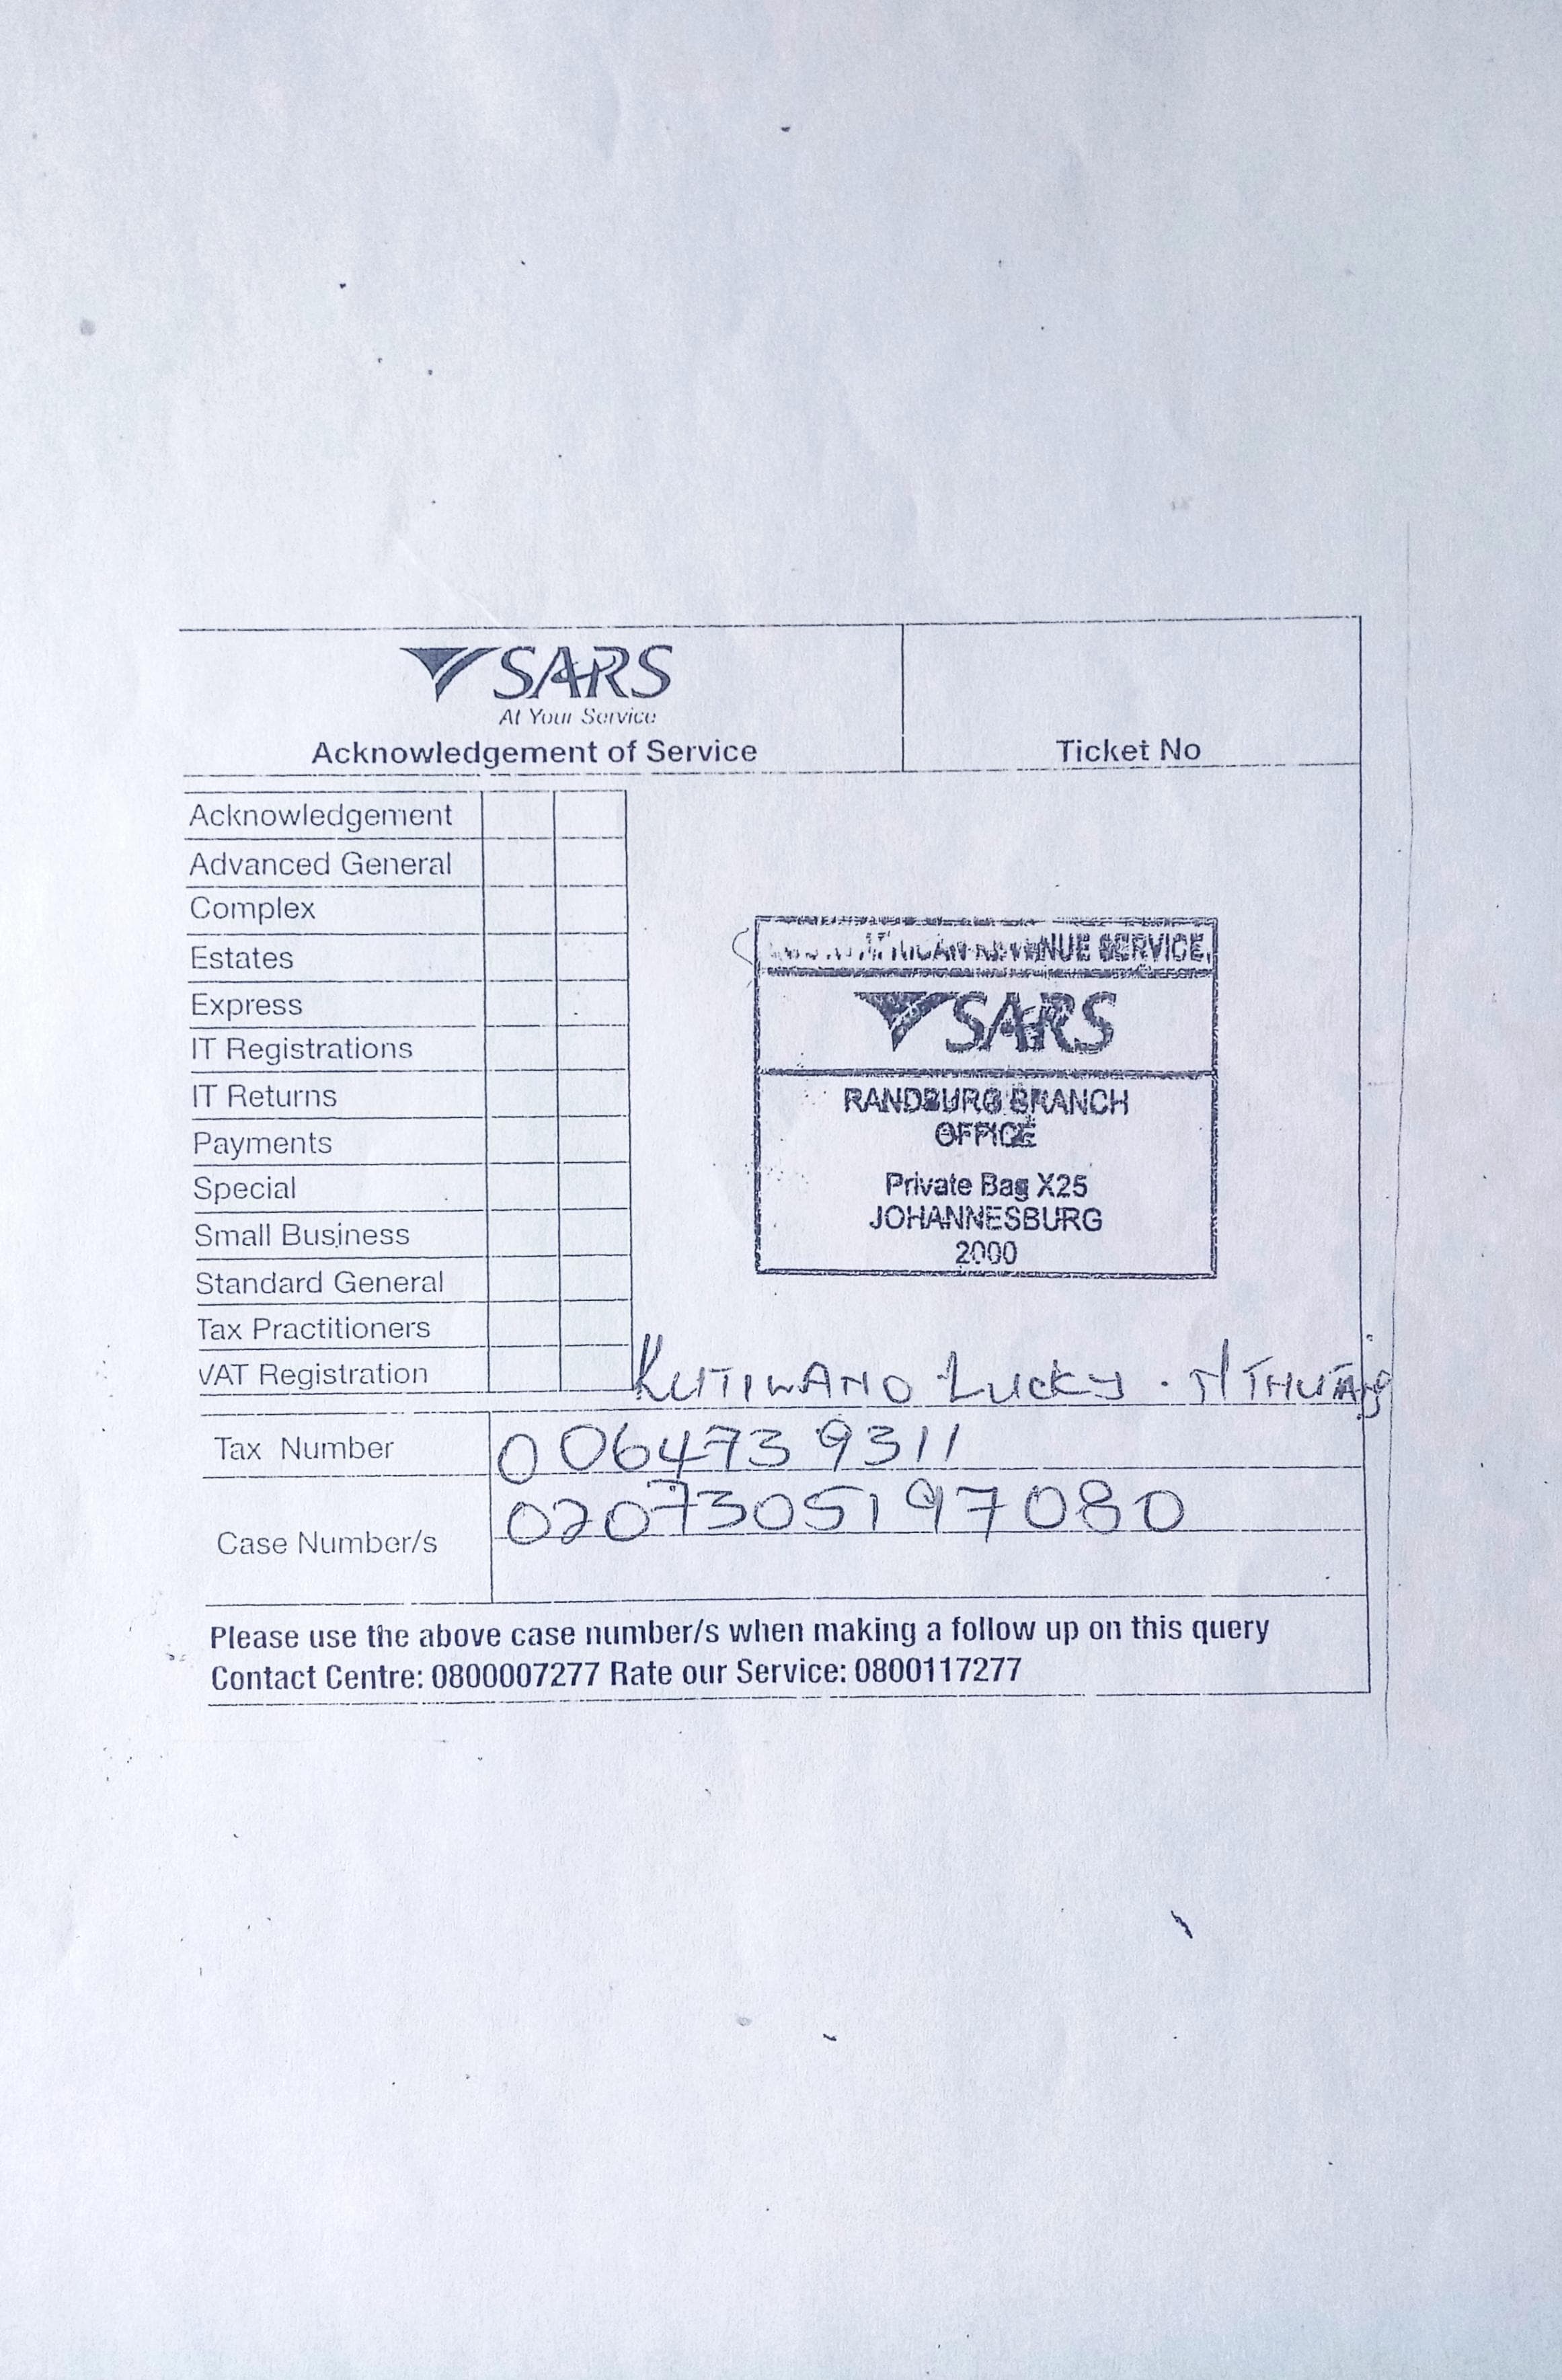 SARS
At Your Service
Acknowledgement of Service
Ticket No
Acknowledgement
Advanced General
Complex
Estates
Express
IT Registrations
IT Returns
Payments
Special
Small Business
Standard General
Tax Practitioners
VAT Registration
REVENUE SERVICE
SARS
RANDBURG BRANCH
OFFICE
Private Bag X25
JOHANNESBURG
2000
Lucky
Tax Number 0064739311
Case Number/s 0207305197080
Please use the above case number/s when making a follow up on this query
Contact Centre: 0800007277 Rate our Service: 0800117277